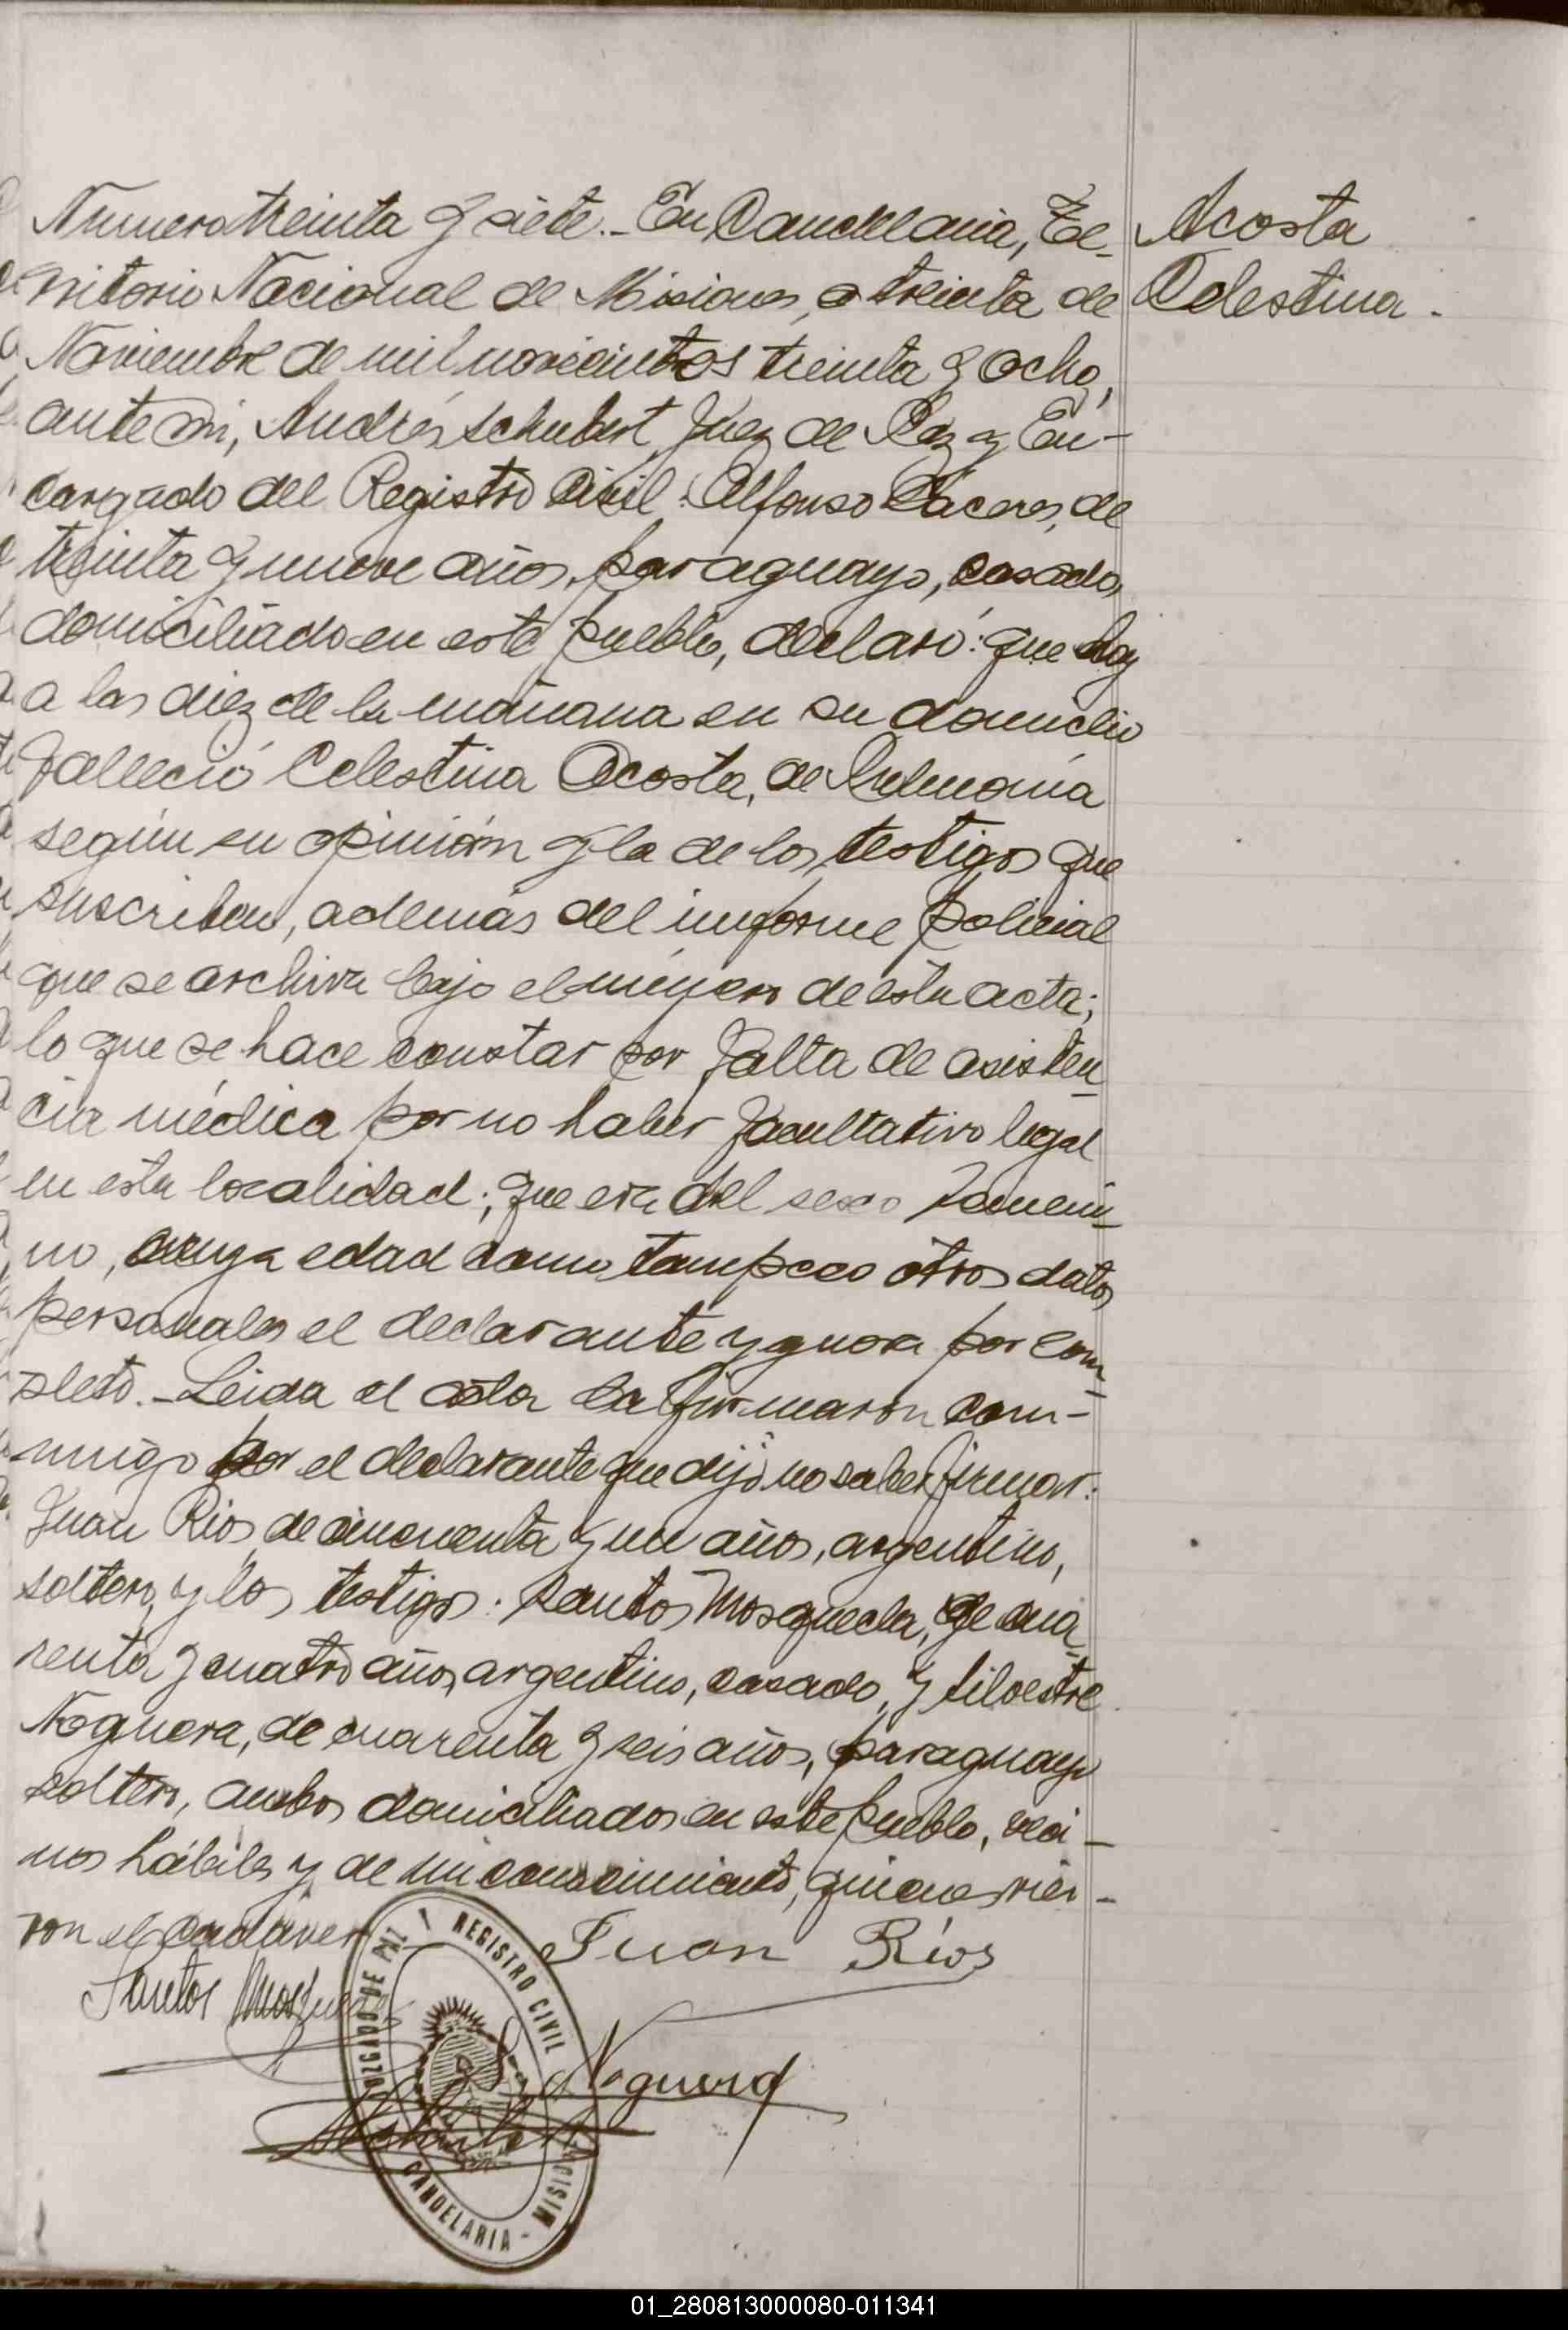 Numero treinta y siete.- En Candelaria, Te-
rritorio Nacional de Misiones, a treinta de
Noviembre de mil novecientos treinta y ocho,
ante mi, Andrés Schubert, Juez de Paz y En-
cargado del Registro Civil: Alfonso Cáceres, de
treinta y nueve años, paraguayo, casado,
domiciliado en este pueblo, declaró: que hoy
a las diez de la mañana en su domicilio
falleció Celestina Acosta, de Pulmonía
según su opinión y la de los testigos que
suscriben, además del informe policial
que se archiva bajo el número de esta acta;
lo que se hace constar por falta de asisten-
cia médica por no haber facultativo legal
en esta localidad; que era del sexo femeni-
no, cuya edad como tampoco otros datos
personales el declarante ygnora por com-
pleto.- Leida el acta la firmaron con-
migo por el declarante que dijo no saber firmar:
Juan Rios de cincuenta y un años, argentino,
soltero, y los testigos: Santos Mosqueda, de cua-
renta y cuatro años, argentino, casado, y Silvestre
Noguera, de cuarenta y seis años, paraguayo
soltero, ambos domiciliados en este pueblo, veci-
nos hábiles y de mi conocimiento, quienes vie-
ron el cadáver
Acosta
Celestina.
Juan Ríos
Santos Mosqueda
S. Noguera
JUZGADO DE PAZ Y REGISTRO CIVIL
CANDELARIA - MISIONES
01_280813000080-011341